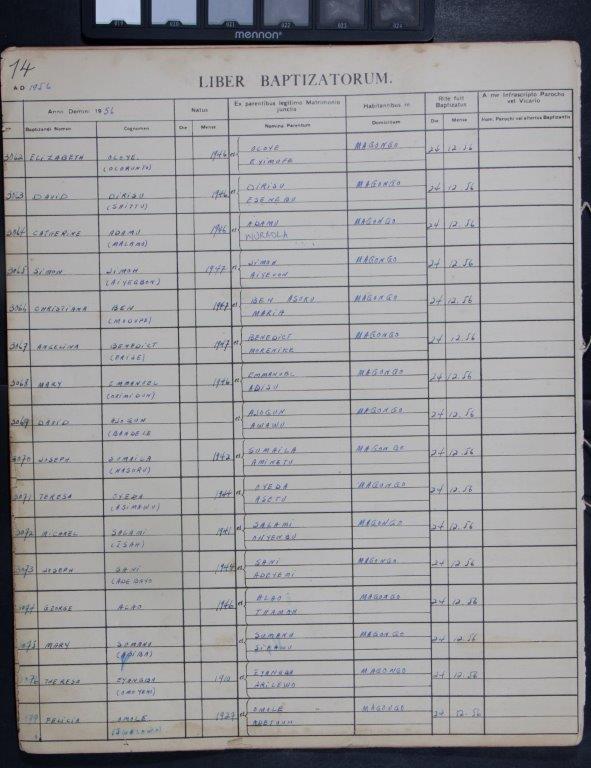 019 020 021 022 023 024
mennon
14
A D 1956
LIBER BAPTIZATORUM.
Anno Domini 1956 Natus Ex parentibus legitimo Matrimonio junctis Habitantibus in Rite fuit Baptizatus A me Infrascripto Parocho vel Vicario
Baptizandi Nomen Cognomen Die Mense Nomina Parentum Domicilium Die Mense Nom. Parochi vel alterius Baptizantis
3062 ELIZABETH OLOYE 1946 et OLOYE MAGONGO 24 12.56
(OLORUNTO) EYIMOFE
3063 DAVID DIRISU 1946 et DIRISU MAGONGO 24 12 56
(SHITTU) ESENEBU
3064 CATHERINE ADAMU 1946 et ADAMU MAGONGO 24 12.56
(MALAMO) WURAOLA
3065 SIMON SIMON 1947 et SIMON MAGONGO 24 12.56
(AIYEGBON) AIYEVON
3066 CHRISTIANA BEN 1947 et BEN ASOKU MAGONGO 24 12.56
(MODUPE) MARIA
3067 ANGELINA BENEDICT 1947 et BENEDICT MAGONGO 24 12.56
MORENIKE
3068 MARY EMMANUEL 1946 et EMMANUEL MAGONGO 24 12.56
ADISU
3069 DAVID AJOGUN et AJOGUN MAGONGO 24 12.56
(BANDELE AWAWU
3070 JOSEPH SUMAILA 1942 et SUMAILA MAGONGO 24 12.56
(NASORU) AMINETU
3071 TERESA OYEDA 1944 et OYEDA MAGONGO 24 12.56
(ASIMAWU) ASETU
3072 MICHAEL SALAMI 1941 et SALAMI MAGONGO 24 12.56
(ISAH) ONYENBU
3073 JOSEPH SANI 1944 et SANI MAGONGO 24 12.56
(ADEBAYO ADEYEMI
3074 GEORGE ALAO 1946 et ALAO MAGONGO 24 12.56
THAMAH
3075 MARY SUMANU et SUMANU MAGONGO 24 12.56
(ABIBA) SIKAWU
76 THERESA IYANGBA 1910 et IYANGBA MAGONGO 24 12.56
(OMOYEMI) ARILEWO
FELICIA OMOLE 1927 et OMOLE MAGONGO 24 12.56
ADETOUN